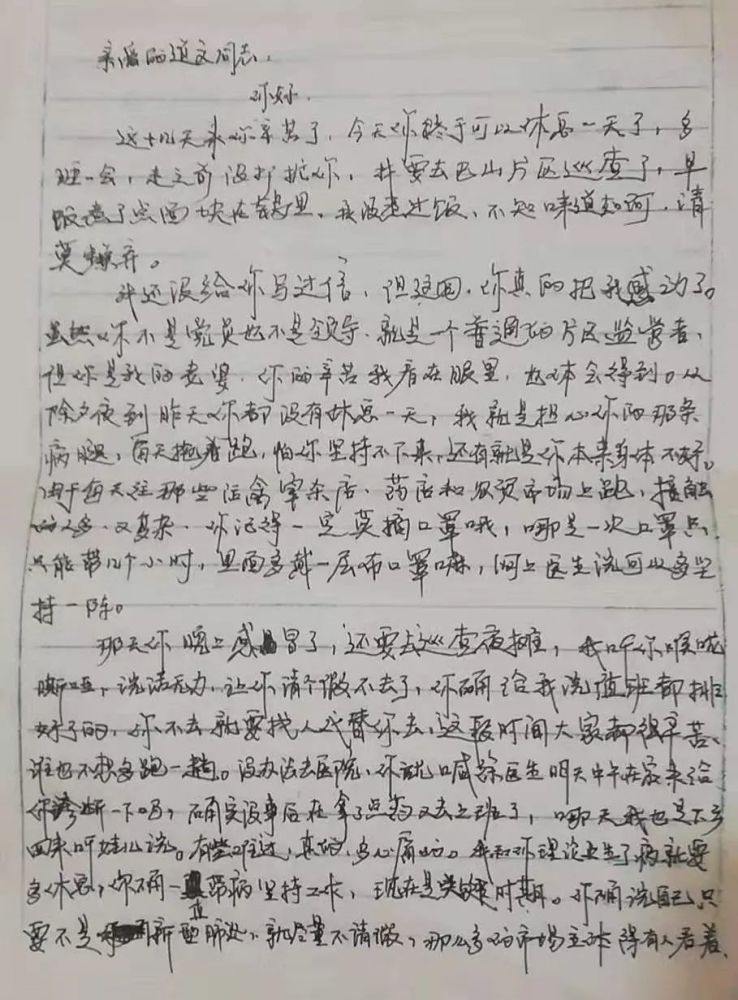 亲爱的道文同志:
你好.
这十几天来你辛苦了,今天你终于可以休息一天了,多
睡一会,走之前没打扰你,我要去巴山片区巡查了,早
饭煮了点面块在锅里,我没煮过饭、不知味道如何,请
莫嫌弃。
我还没给你写过信,但这回,你真的把我感动了。
虽然你不是党员也不是领导、就是一个普通的片区监管者、
但你是我的老婆、你的辛苦我看在眼里,也体会得到。从
除夕夜到昨天你都没有休息一天,我就是担心你的那条
病腿,每天拖着跑,怕你坚持不下来,还有就是你本来身体不好。
由于每天往那些活禽宰杀店、药店和农贸市场上跑,接触
的人多、又复杂、你记得一定莫摘口罩哦,哪是一次口罩只
只能带几个小时,里面多戴一层布口罩嘛,网上医生说可以多坚
持一阵。
那天你晚上感冒了,还要去巡查夜摊,我听你喉咙
嘶哑,说话无力,让你请个假不去了,你确给我说值班都排
好了的,你不去就要找人代替你去,这段时间大家都很辛苦、
谁也不想多跑一趟。没办法去医院,你就喊医生明天中午在家来给
你诊断一下吗,确实没事后在拿了点药又去上班了,哪天我也是下乡
回来听娃儿说。有些难过,真的,多心痛的。我和你理论生了病就要
多休息,你确一直带病坚持工作,现在是关键时期。你确说自己只
要不是新型肺炎、就尽量不请假,那么多的市场主体得有人看着、